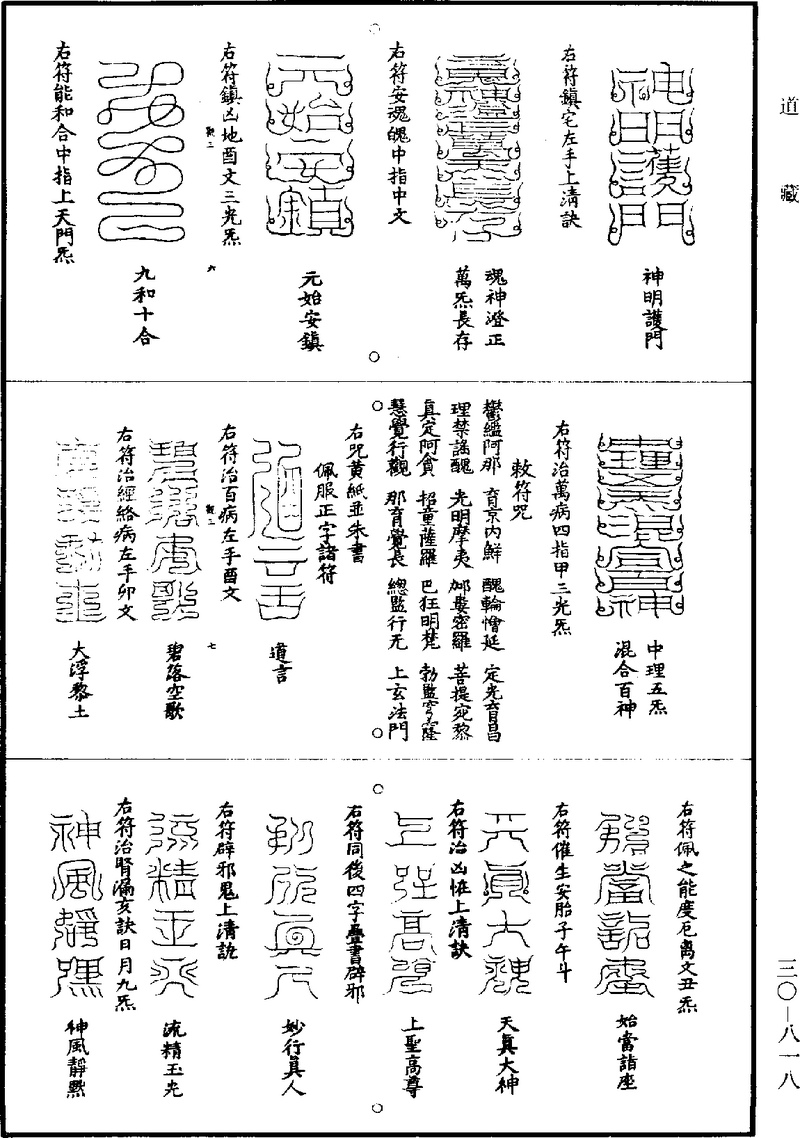 道藏
神明護門
右符鎮宅左手上清訣
魂神澄正
萬炁長存
右符安魂魄中指中文
元始安鎮
右符鎮凶地酉文三光炁
九和十合
右符能和合中指上天門炁
六
中理五炁
混合百神
右符治萬病四指甲三光炁
敕符咒
鬱繿阿那 育京內鮮 醜輪憎延 定光育昌
理禁謠醜 光明摩夷 邮婁密羅 菩提宛黎
真定阿貪 招童薩羅 巴狂明梵 勃監穹隆
慧覺行觀 那育覺長 總監行无 上玄法門
右咒黃紙並朱書
佩服正字諸符
道言
右符治百病左手酉文
碧落空歌
右符治經絡病左手卯文
大浮黎土
七
右符佩之能度厄离文丑炁
始當詣座
右符催生安胎子午斗
天真大神
右符治凶怪上清訣
上聖高尊
右符同後四字疊書辟邪
妙行真人
右符辟邪鬼上清訣
流精玉光
右符治腎漏亥訣日月九炁
神風靜默
三〇—八一八